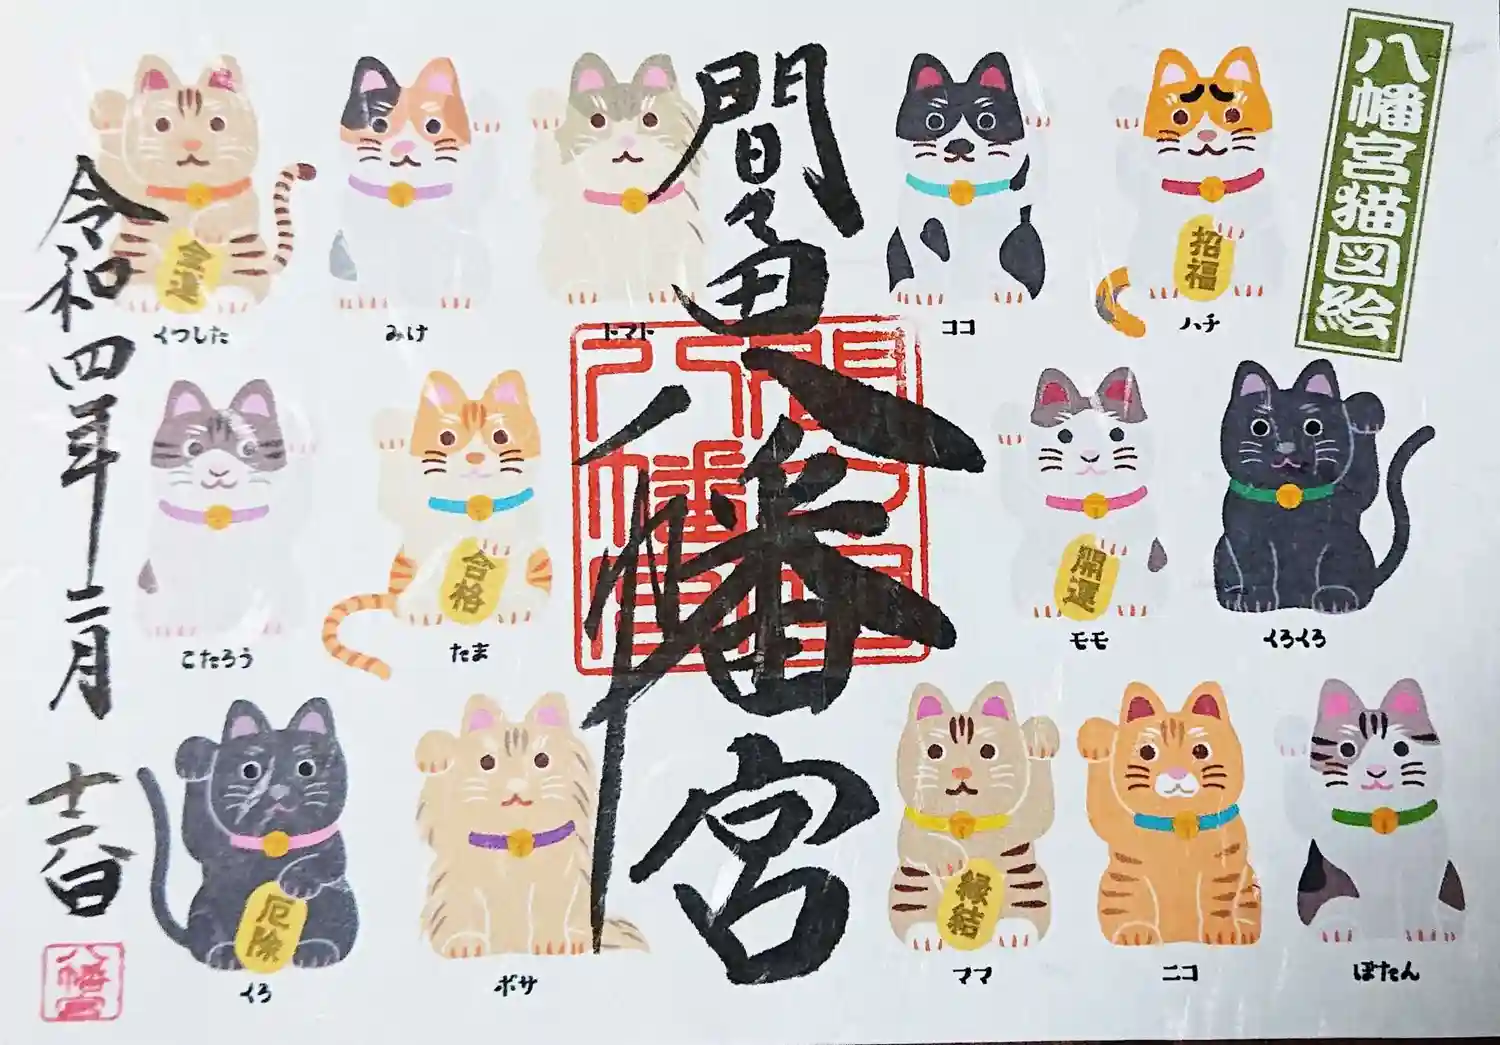 八幡宮猫図絵
間々田八幡宮
令和四年二月
間々田八幡宮
八幡宮
金運
くつした
みけ
トマト
ココ
招福
ハチ
こたろう
合格
たま
開運
モモ
くろくろ
厄除
くろ
ボサ
縁結
ママ
ニコ
ぼたん